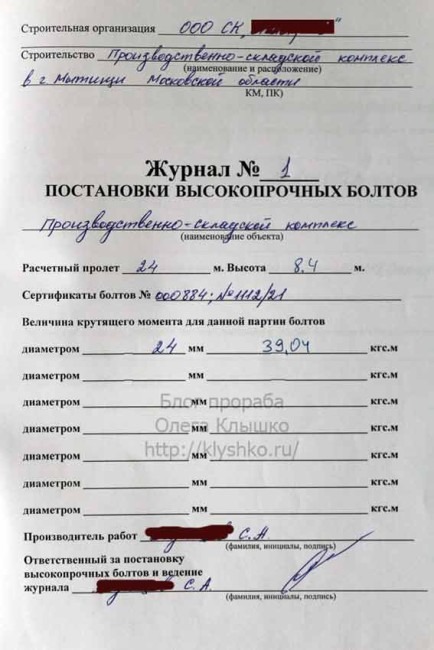 Строительная организация ООО СК „
Строительство Производственно-складской комплекс
(наименование и расположение)
в г. Мытищи Московской области
КМ, ПК)
Журнал № 1
ПОСТАНОВКИ ВЫСОКОПРОЧНЫХ БОЛТОВ
Производственно-складской комплекс
(наименование объекта)
Расчетный пролет 24 м. Высота 8.4 м.
Сертификаты болтов № 000884; №1112/21
Величина крутящего момента для данной партии болтов
диаметром 24 мм 39,04 кгс.м
диаметром мм кгс.м
диаметром мм кгс.м
диаметром мм кгс.м
диаметром мм кгс.м
диаметром мм кгс.м
диаметром мм кгс.м
Блог прораба
Олега Клышко
http://klyshko.ru/
Производитель работ С.А.
(фамилия, инициалы, подпись)
Ответственный за постановку
высокопрочных болтов и ведение
журнала С.А.
(фамилия, инициалы, подпись)